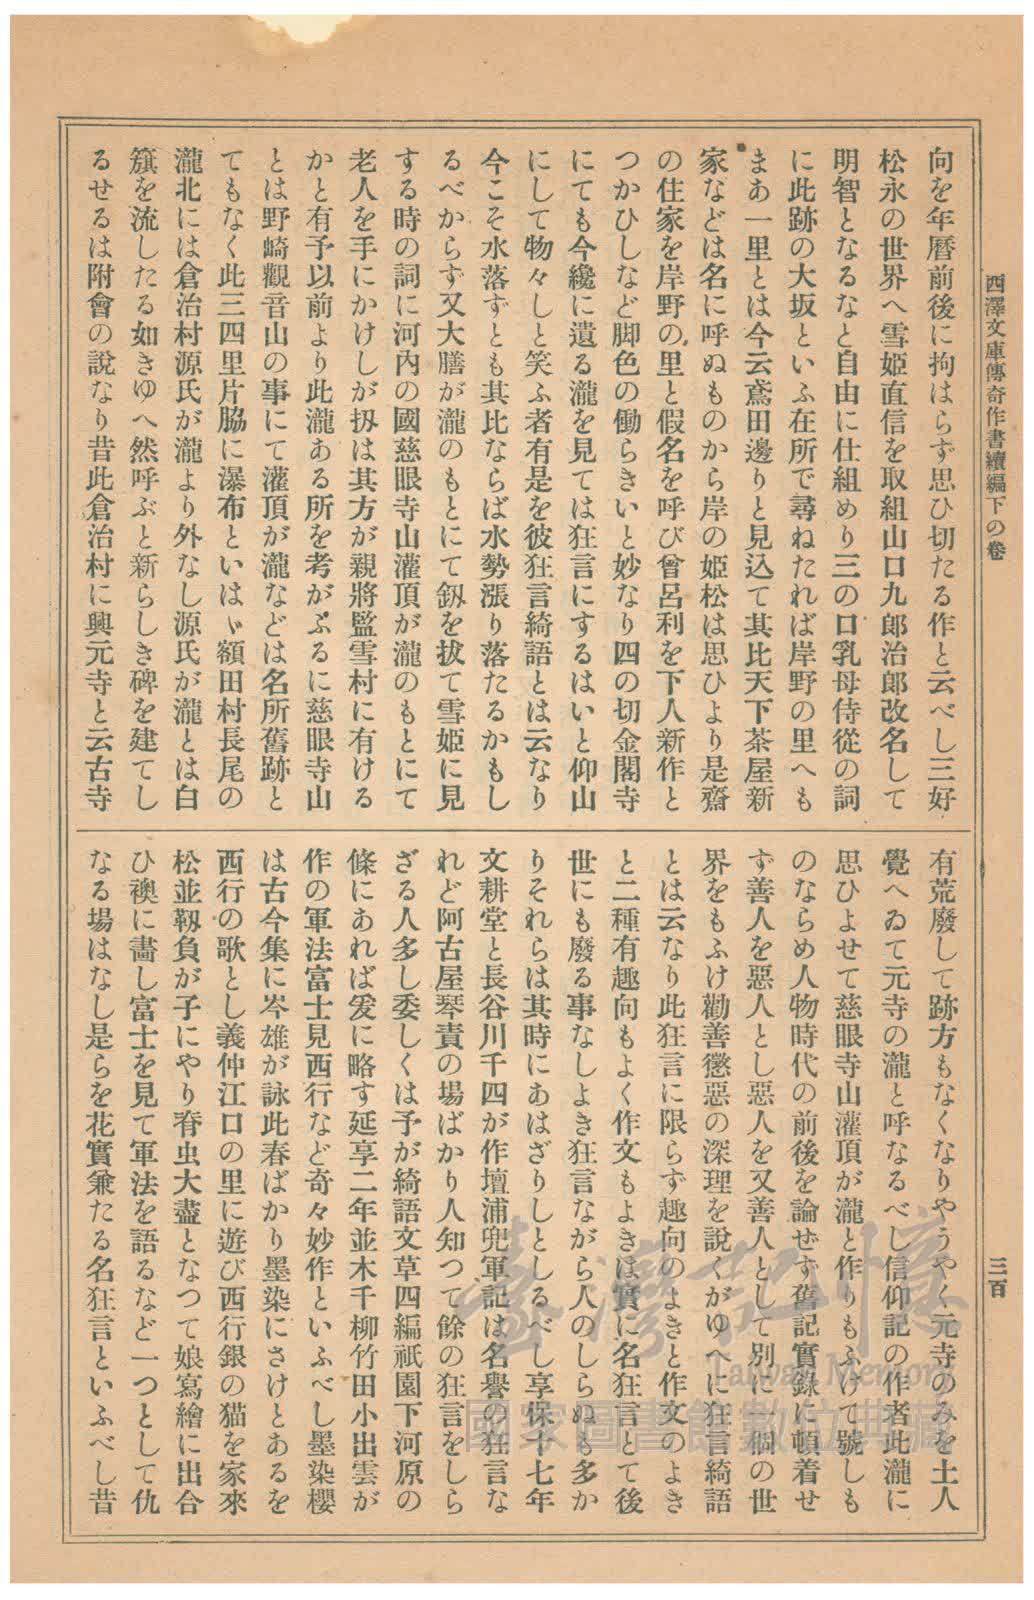 西澤文庫傳奇作書續編下の卷
三百
向を年曆前後に拘はらず思ひ切たる作と云べし三好
松永の世界へ雪姬直信を取組山口九郎治郎改名して
明智となるなと自由に仕組めり三の口乳母侍從の詞
に此跡の大坂といふ在所で尋ねたれば岸野の里へも
まあ一里とは今云鳶田邊りと見込て其比天下茶屋新
家などは名に呼ぬものから岸の姬松は思ひより是齋
の住家を岸野の里と假名を呼び曾呂利を下人新作と
つかひしなど脚色の働らきいと妙なり四の切金閣寺
にても今纔に遺る瀧を見ては狂言にするはいと仰山
にして物々しと笑ふ者有是を彼狂言綺語とは云なり
今こそ水落ずとも其比ならば水勢漲り落たるかもし
るべからず又大膳が瀧のもとにて釼を拔て雪姬に見
する時の詞に河內の國慈眼寺山灌頂が瀧のもとにて
老人を手にかけしが扨は其方が親將監雪村に有ける
かと有予以前より此瀧ある所を考がふるに慈眼寺山
とは野崎觀音山の事にて灌頂が瀧などは名所舊跡と
てもなく此三四里片脇に瀑布といはゞ額田村長尾の
瀧北には倉治村源氏が瀧より外なし源氏が瀧とは白
籏を流したる如きゆへ然呼ぶと新らしき碑を建てし
るせるは附會の說なり昔此倉治村に興元寺と云古寺
有荒廢して跡方もなくなりやうやく元寺のみを土人
覺へゐて元寺の瀧と呼なるべし信仰記の作者此瀧に
思ひよせて慈眼寺山灌頂が瀧と作りもふけて號しも
のならめ人物時代の前後を論せず舊記實錄に頓着せ
ず善人を惡人とし惡人を又善人として別に一個の世
界をもふけ勸善懲惡の深理を說くがゆへに狂言綺語
とは云なり此狂言に限らす趣向のよきと作文のよき
と二種有趣向もよく作文もよきは實に名狂言とて後
世にも廢る事なしよき狂言ながら人のしらぬも多か
りそれらは其時にあはざりしとしるべし享保十七年
文耕堂と長谷川千四が作壇浦兜軍記は名譽の狂言な
れど阿古屋琴責の場ばかり人知つて餘の狂言をしら
ざる人多し委しくは予が綺語文草四編祇園下河原の
條にあれば爰に略す延享二年並木千柳竹田小出雲が
作の軍法富士見西行など奇々妙作といふべし墨染櫻
は古今集に岑雄が詠此春ばかり墨染にさけとあるを
西行の歌とし義仲江口の里に遊び西行銀の猫を家來
松並靱負が子にやり脊虫大盡となつて娘寫繪に出合
ひ襖に畵し富士を見て軍法を語るなど一つとして仇
なる場はなし是らを花實兼たる名狂言といふべし昔
臺灣記憶
Taiwan Memory
國家圖書館數位典藏